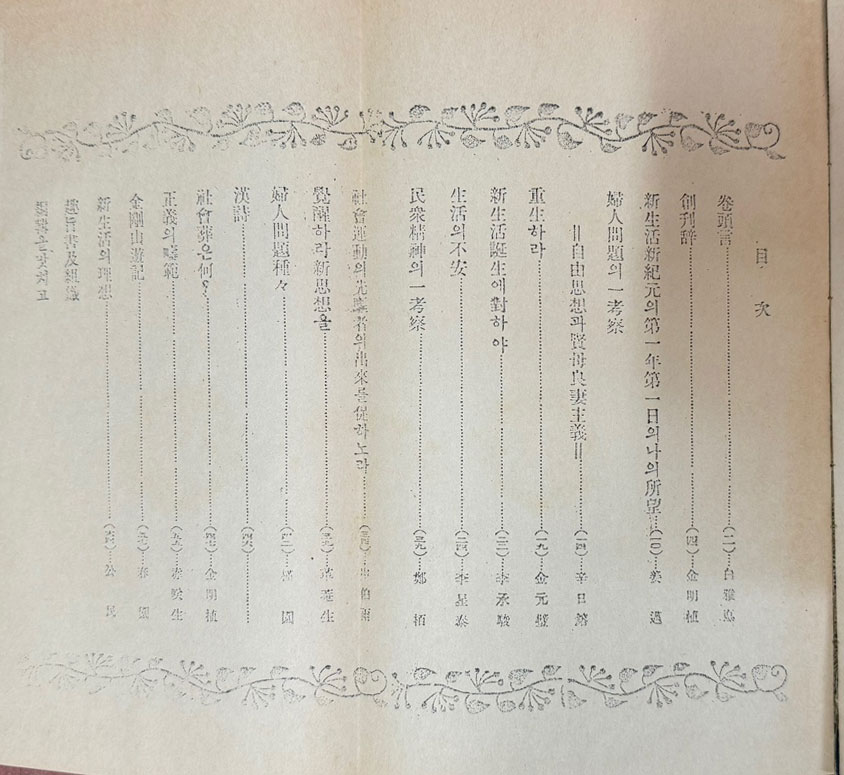 目次
卷頭言……(二)…白雅悳
創刊辞……(四)…金明植
新生活新紀元의第一年第一日의나의所望…(一〇)…姜邁
婦人問題의一考察
‖自由思想과賢母良妻主義‖……(一四)…辛日鎔
重生하라……(一九)…金元璧
新生活誕生에對하야……(二二)…李承駿
生活의不安……(二四)…李星泰
民衆精神의一考察……(二九)…鄭栢
社會運動의先驅者의出來를促하노라……(三四)…申伯雨
覺醒하라新思想을……(三九)
婦人問題種々……(四二)
漢詩……(四六)
社會葬은何?……(四七)…金明植
正義의……(五六)…赤咲生
金剛山遊記……(五七)…春園
新生活의理想……(六四)…公民
趣旨書及組織
編輯을맛치고